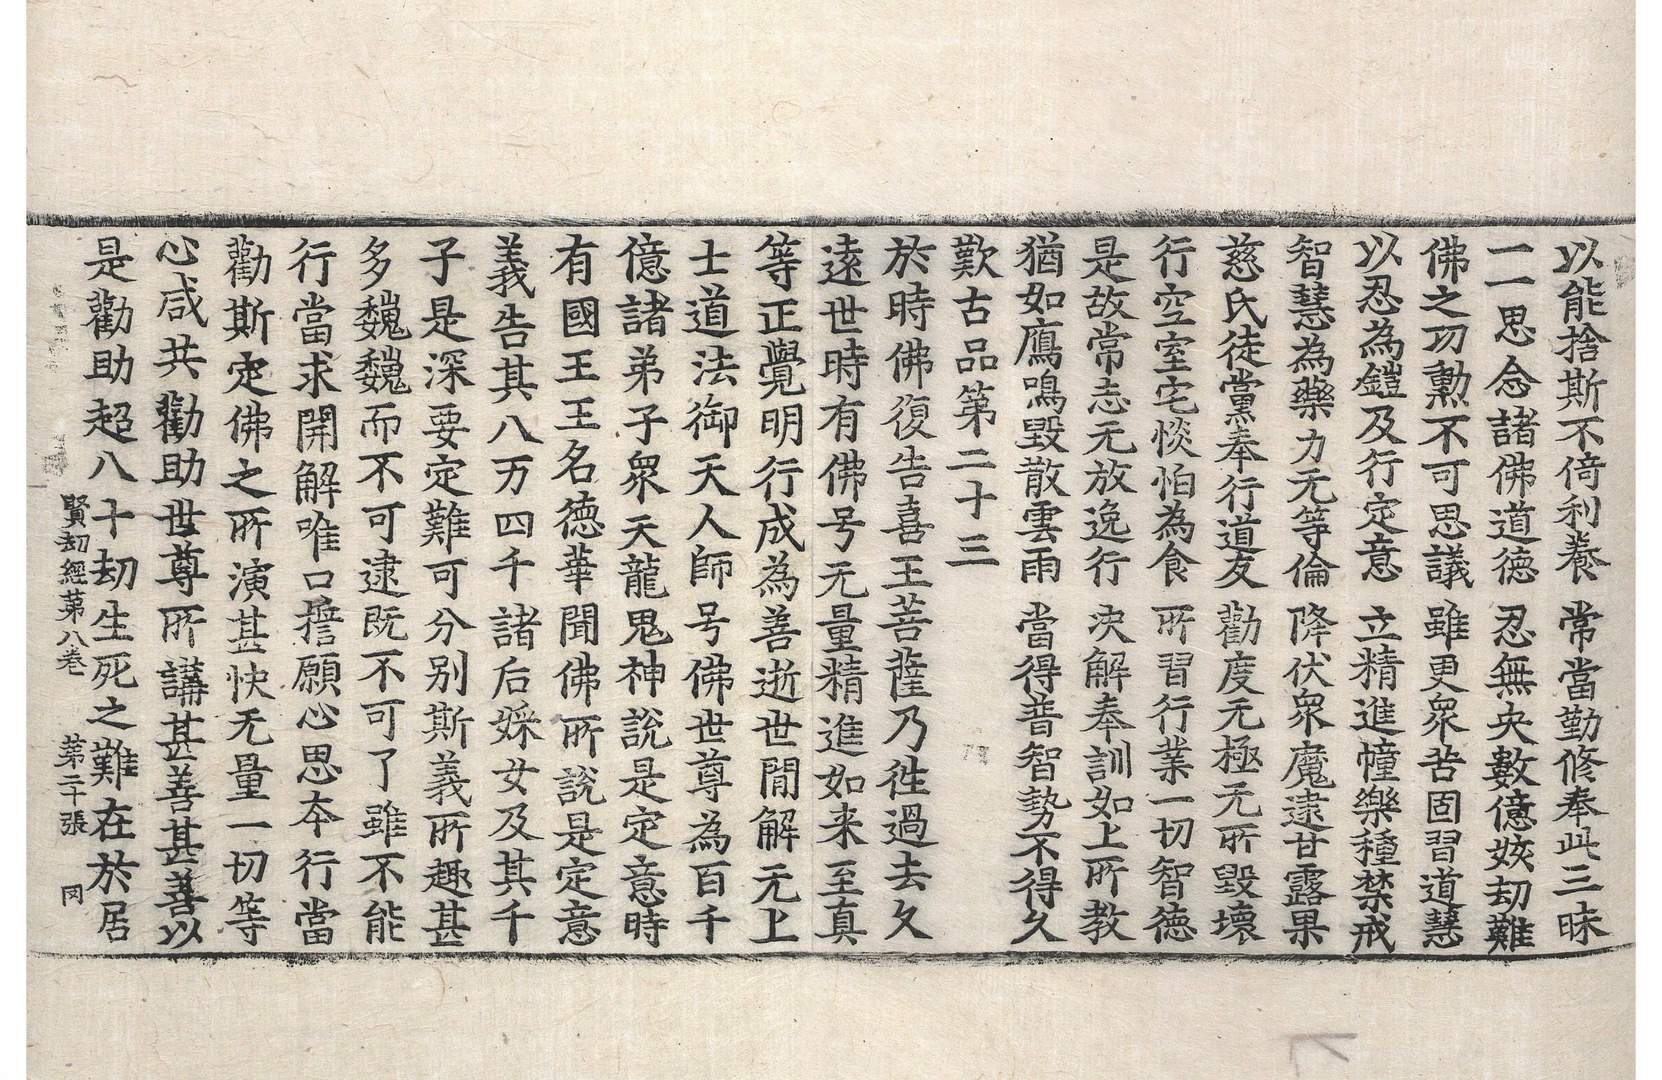 以能捨斯不倚利養 常當勤修奉此三昧
一一思念諸佛道德 忍無央數億姟劫難
佛之功勲不可思議 雖更衆苦固習道慧
以忍為鎧及行定意 立精進幢樂種禁戒
智慧為藥力无等倫 降伏衆魔逮甘露果
慈氏徒黨奉行道友 勸度无極无所毀壞
行空室宅惔怕為食 所習行業一切智德
是故常志无放逸行 决解奉訓如上所教
猶如鷹鳴毀散雲雨 當得普智勢不得久
歎古品第二十三
於時佛復告喜王菩薩乃徃過去久
遠世時有佛号无量精進如来至真
等正覺明行成為善逝世間解无上
士道法御天人師号佛世尊為百千
億諸弟子衆天龍鬼神說是定意時
有國王王名德華聞佛所說是定意
義告其八万四千諸后婇女及其千
子是深要定難可分别斯義所趣甚
多巍巍而不可逮既不可了雖不能
行當求開解唯口擔願心思本行當
勸斯定佛之所演甚快无量一切等
心咸共勸助世尊所講甚善甚善以
是勸助超八十劫生死之難在於居
賢劫經第八卷 第二十張 罔